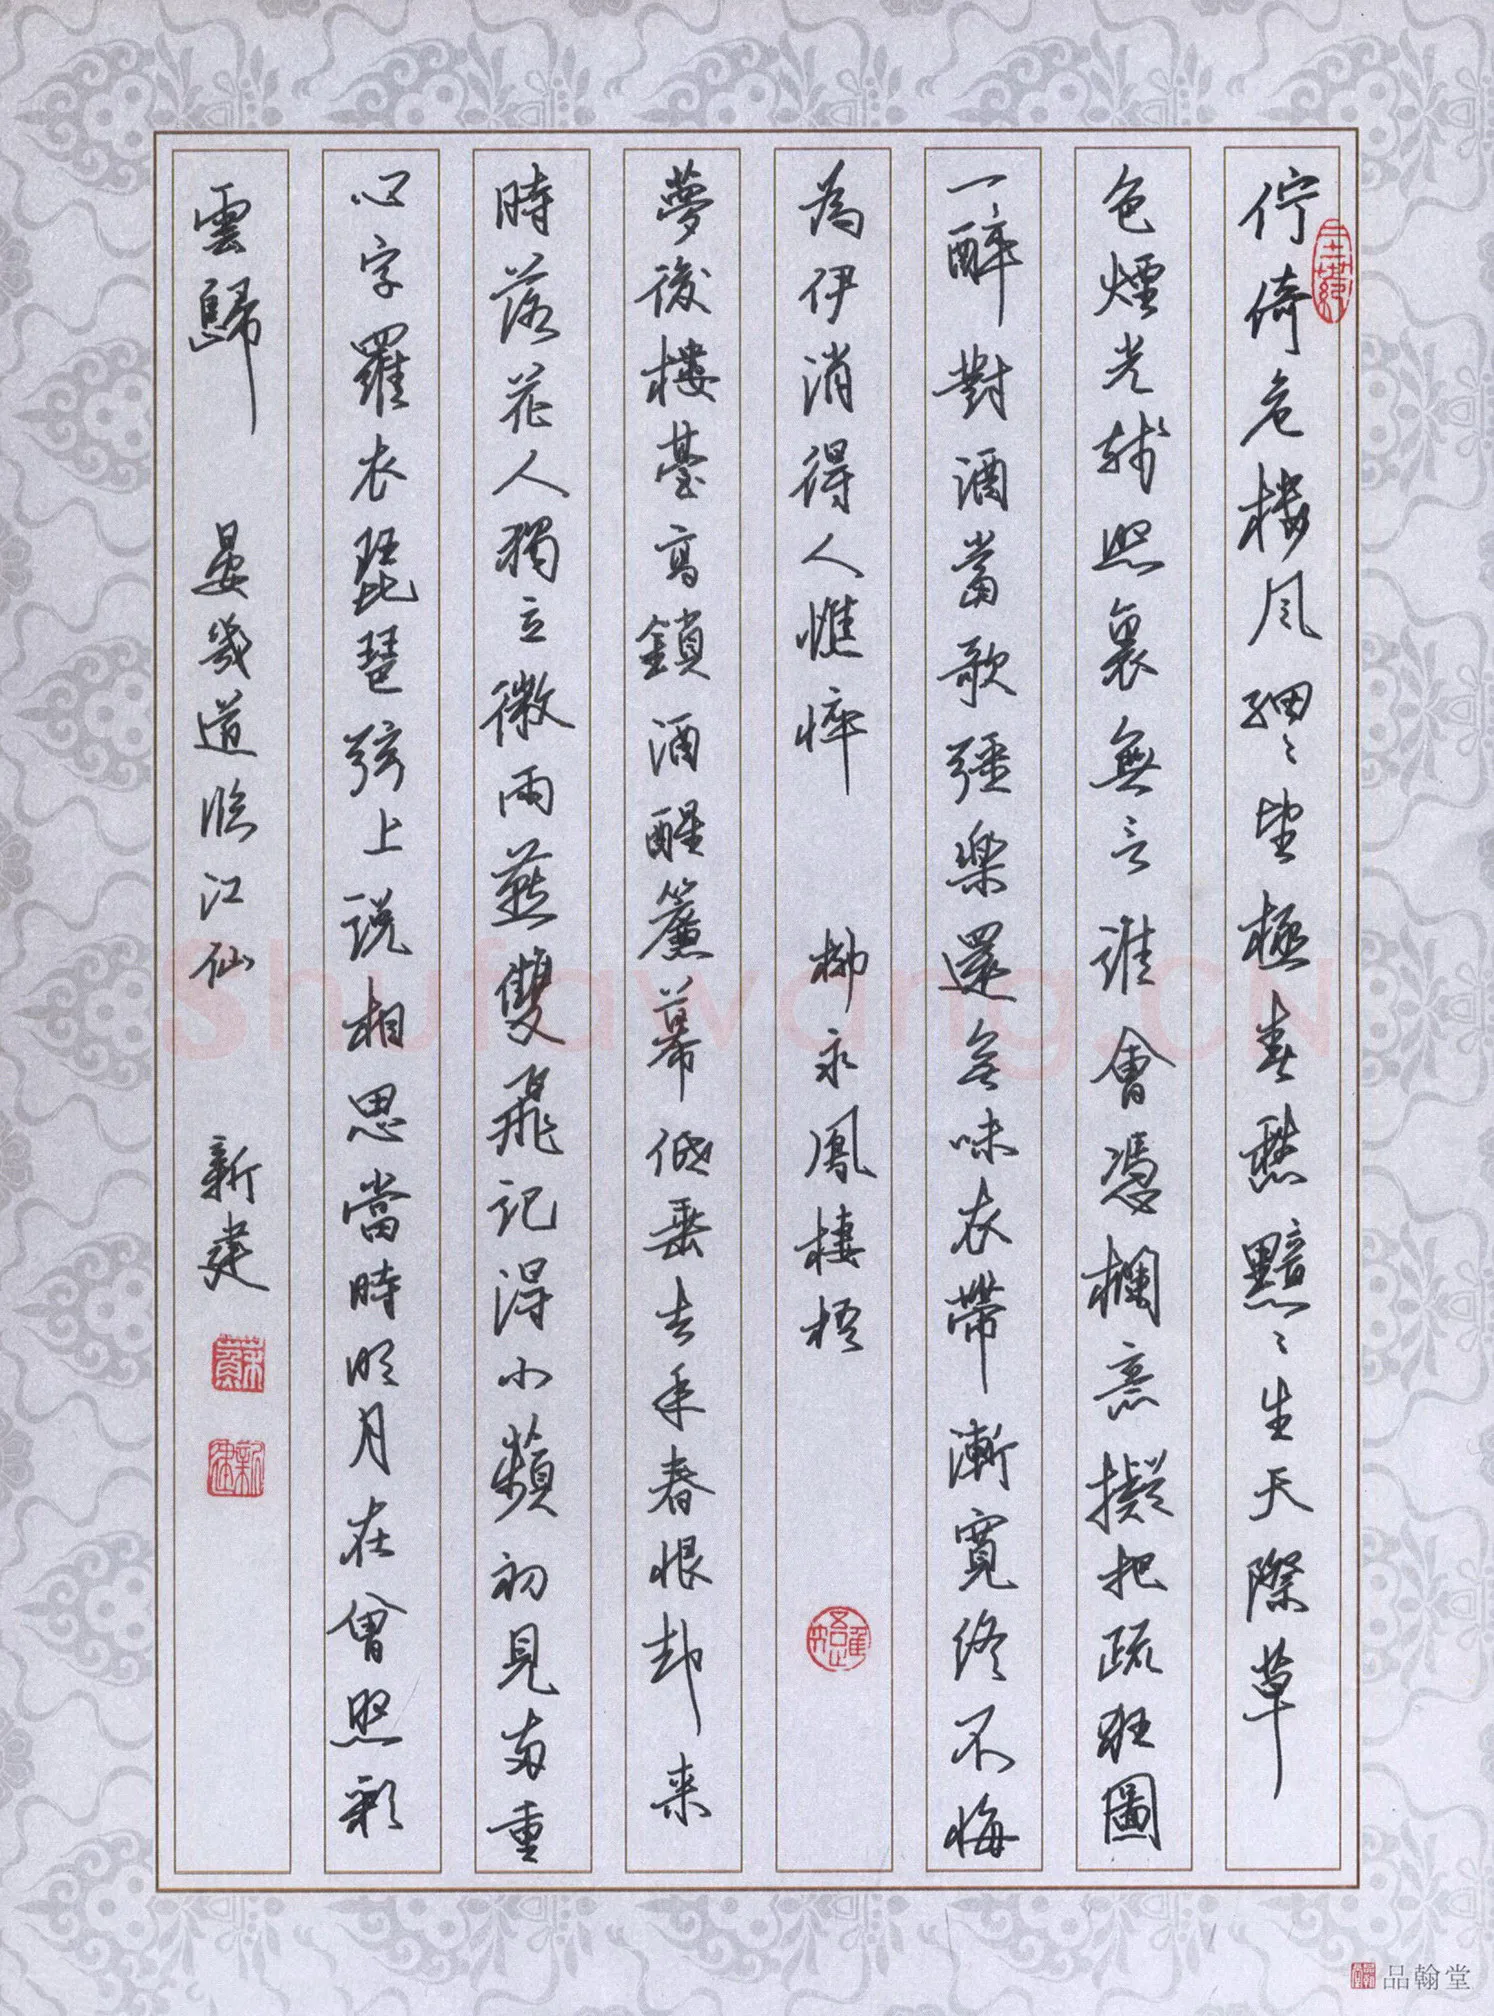 佇倚危楼风細〻望極春愁黯〻生天際草
色煙光残照裏無言誰會憑欄意擬把疏狂圖
一醉對酒當歌强樂還無味衣帶漸寬終不悔
為伊消得人憔悴 柳永鳳棲梧
夢後樓臺高鎖酒醒簾幕低垂去年春恨却来
時落花人獨立微雨燕雙飛記得小蘋初見两重
心字羅衣琵琶弦上说相思當時明月在曾照彩
雲歸 晏幾道临江仙 新建
蘇
新建
Shufawang.CN
品翰堂